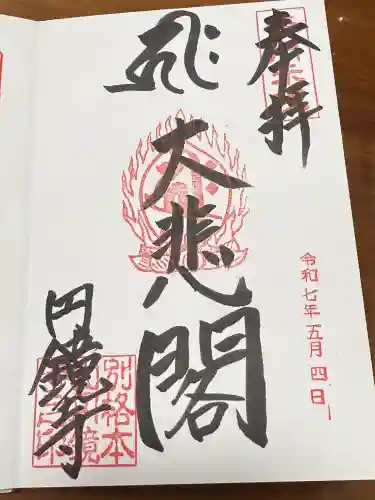 奉拝
令和七年五月四日
大悲閣
円鏡寺
別格本